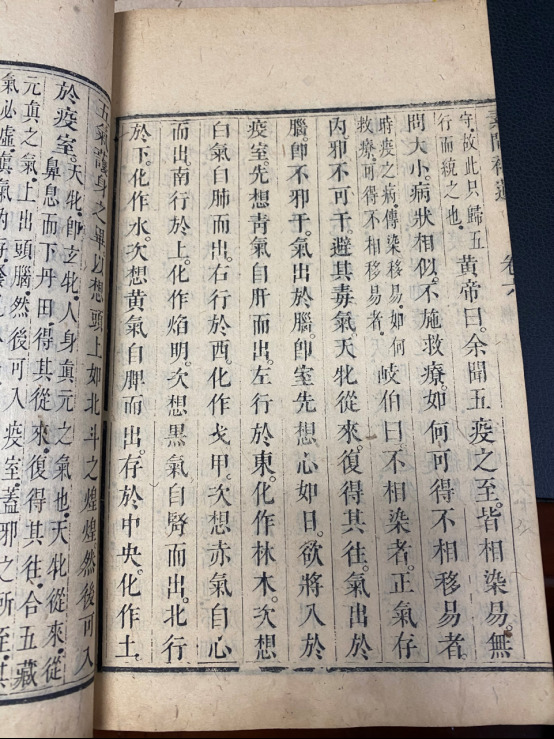 素問補遺 卷六
守。故此只歸五
行而統之也。
黃帝曰。余聞五疫之至。皆相染易。無
問大小。病狀相似。不施救療。如何可得不相移易者。
時疫之病傳染移易如何
救療可得不相移易者。
岐伯曰。不相染者。正氣存
內。邪不可干。避其毒氣。天牝從來。復得其往。氣出於
腦。卽不邪干。氣出於腦。卽室先想心如日。欲將入於
疫室。先想青氣自肝而出。左行於東。化作林木。次想
白氣自肺而出。右行於西。化作戈甲。次想赤氣自心
而出。南行於上。化作焰明。次想黑氣自腎而出。北行
於下。化作水。次想黃氣自脾而出。存於中央。化作土。
五氣護身之畢。以想頭上如北斗之煌煌。然後可入
於疫室。
天牝。卽玄牝。人身眞元之氣也。天牝從來。從
鼻息而下丹田得其從來。復得其往。合五藏
元眞之氣。上出頭腦。然後可入疫室。蓋邪之所至。其
氣必虛。眞氣內存